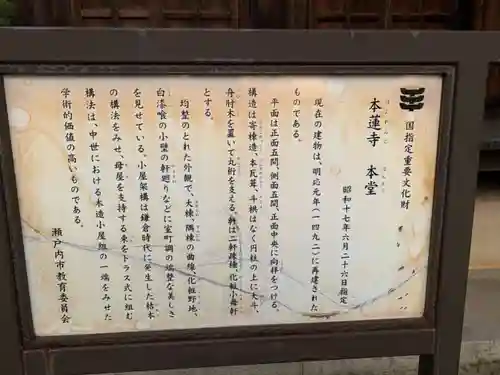 国指定重要文化財
本蓮寺 本堂
ほんれんじ ほんどう
昭和十七年六月二十六日指定
現在の建物は、明応元年(一四九二)に再建された
ものである。
平面は正面五間、側面五間、正面中央に向拝をつける。
構造は寄棟造、本瓦葺、斗栱はなく円柱の上に大斗、
舟肘木を置いて丸桁を支える。軒は二軒疎棰、化粧小舞軒
とする。
均整のとれた外観で、大棟、隅棟の曲線、化粧野地、
白漆喰の小壁の軒廻りなどに室町調の端整な美しさ
を見せている。小屋架構は鎌倉時代に発生した枯木
の構法をみせ、母屋を支持する束をトラス式に組む
構法は、中世における木造小屋組の一端をみせた
学術的価値の高いものである。
瀬戸内市教育委員会